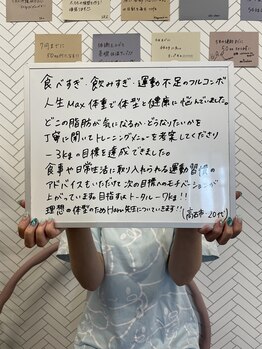 食べすぎ・飲みすぎ・運動不足のフルコンボ
人生MAX体重で体型と健康に悩んでいました。
どこの脂肪が気になるか・どうなりたいかを
丁寧に聞いてトレーニングメニューを考案してくださり
-3kgの目標を達成できました。
食事や日常生活に取り入れられる運動習慣の
アドバイスもいただけて次の目標へのモチベーションが
上がっています。目指すはトータル-7kg!!
理想の体型のためHaru先生についていきます!!
(高石市・20代)